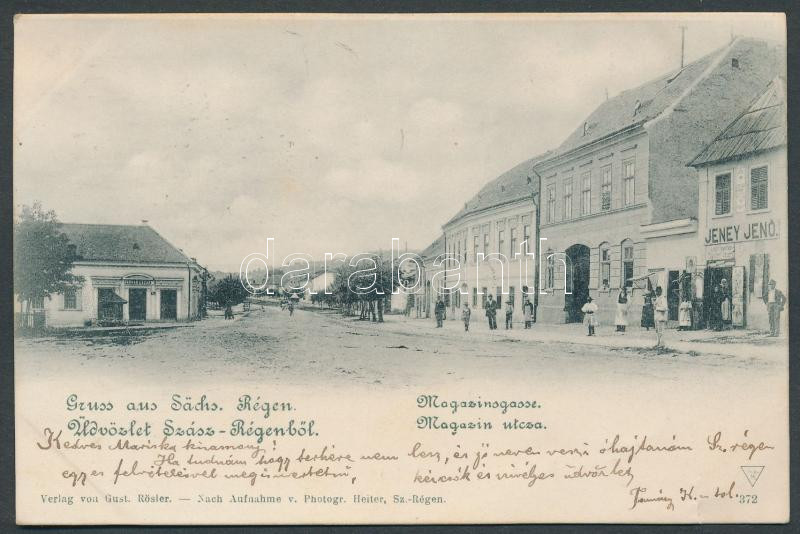 JENEY JENŐ.
darabanth
Gruss aus Sächs. Régen.
Üdvözlet Szász-Régenből.
Magazinsgasse.
Magazin utcza.
Kedves Mariska kisasszony!
Ha tudnám hogy terhére nem lesz, és jó néven veszi óhajtanám Sz. régen
egyes felvételeivel megismertetni, kérésök és szívélyes üdvözlet
K-tol.
Verlag von Gust. Rösler. — Nach Aufnahme v. Photogr. Heiter, Sz.-Régen.
372